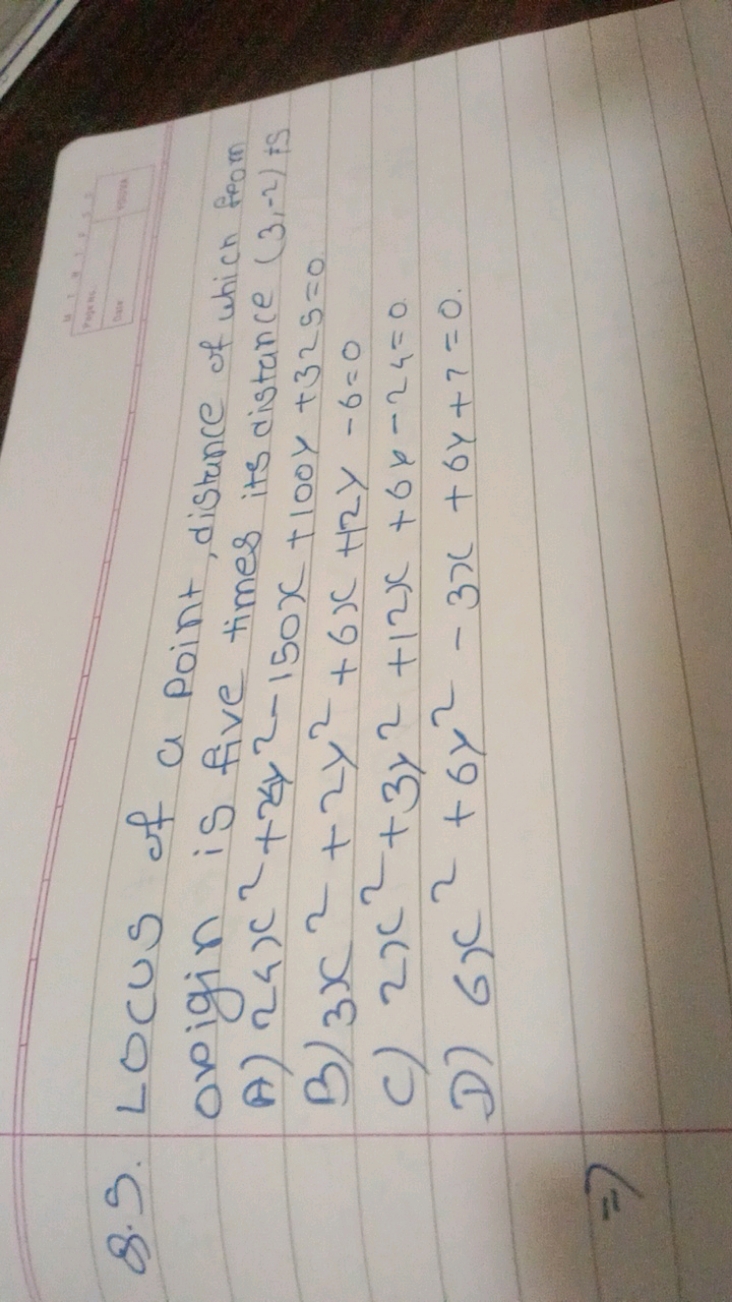 Page no.
Date
8.5. Locus of a point, distance of which from
origin is five times its distance (3,-2) is
A) 24x² + 24y² - 150x + 100y + 325 = 0.
B) 3x² + 2y² + 6x + 12y - 6 = 0
C) 2x² + 3y² + 12x + 6y - 24 = 0.
D) 6x² + 6y² - 3x + 6y + 7 = 0.
⇒